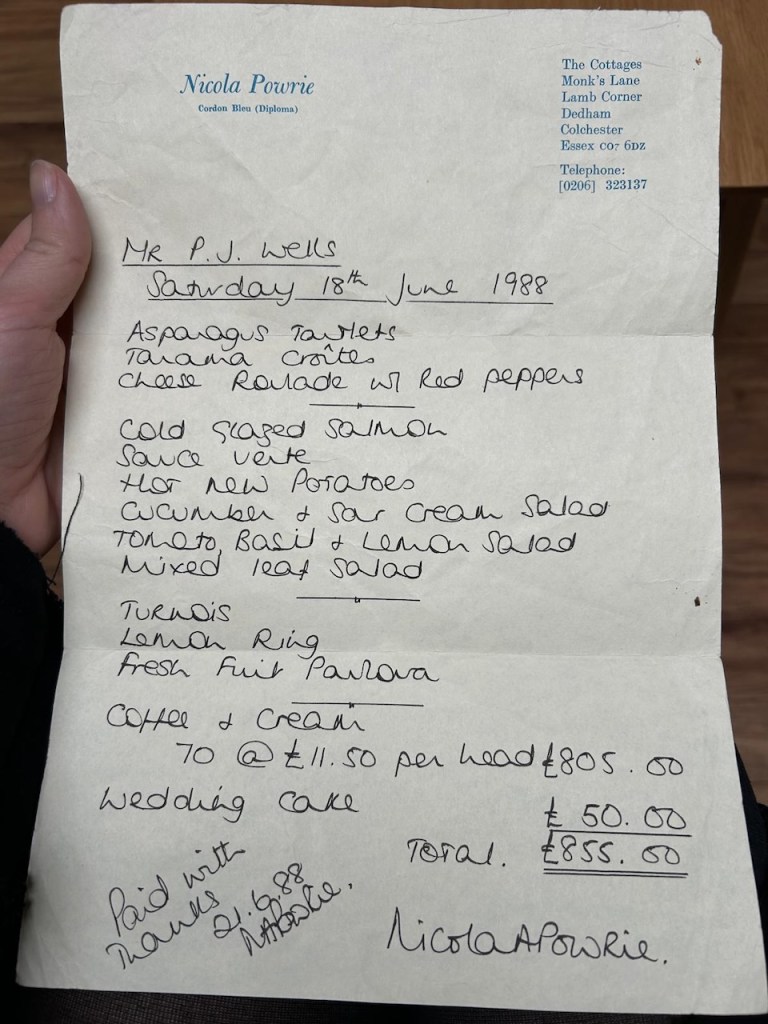 Nicola Powrie
Cordon Bleu (Diploma)
The Cottages
Monk's Lane
Lamb Corner
Dedham
Colchester
Essex CO7 6DZ
Telephone:
[0206] 323137
Mr P.J. Wells
Saturday 18th June 1988
Asparagus Tartlets
Tarama Croîtes
Cheese Roulade w/ Red peppers
Cold glazed Salmon
Sauce verte
Hot new Potatoes
Cucumber & Sour Cream Salad
Tomato, Basil & Lemon Salad
Mixed leaf Salad
Turnois
Lemon Ring
Fresh Fuit Pavlova
Coffee & Cream
70 @ £11.50 per head £805.00
Wedding Cake £ 50.00
Total. £855.00
Paid with
Thanks
21.6.88
NAPowrie.
Nicola A Powrie.